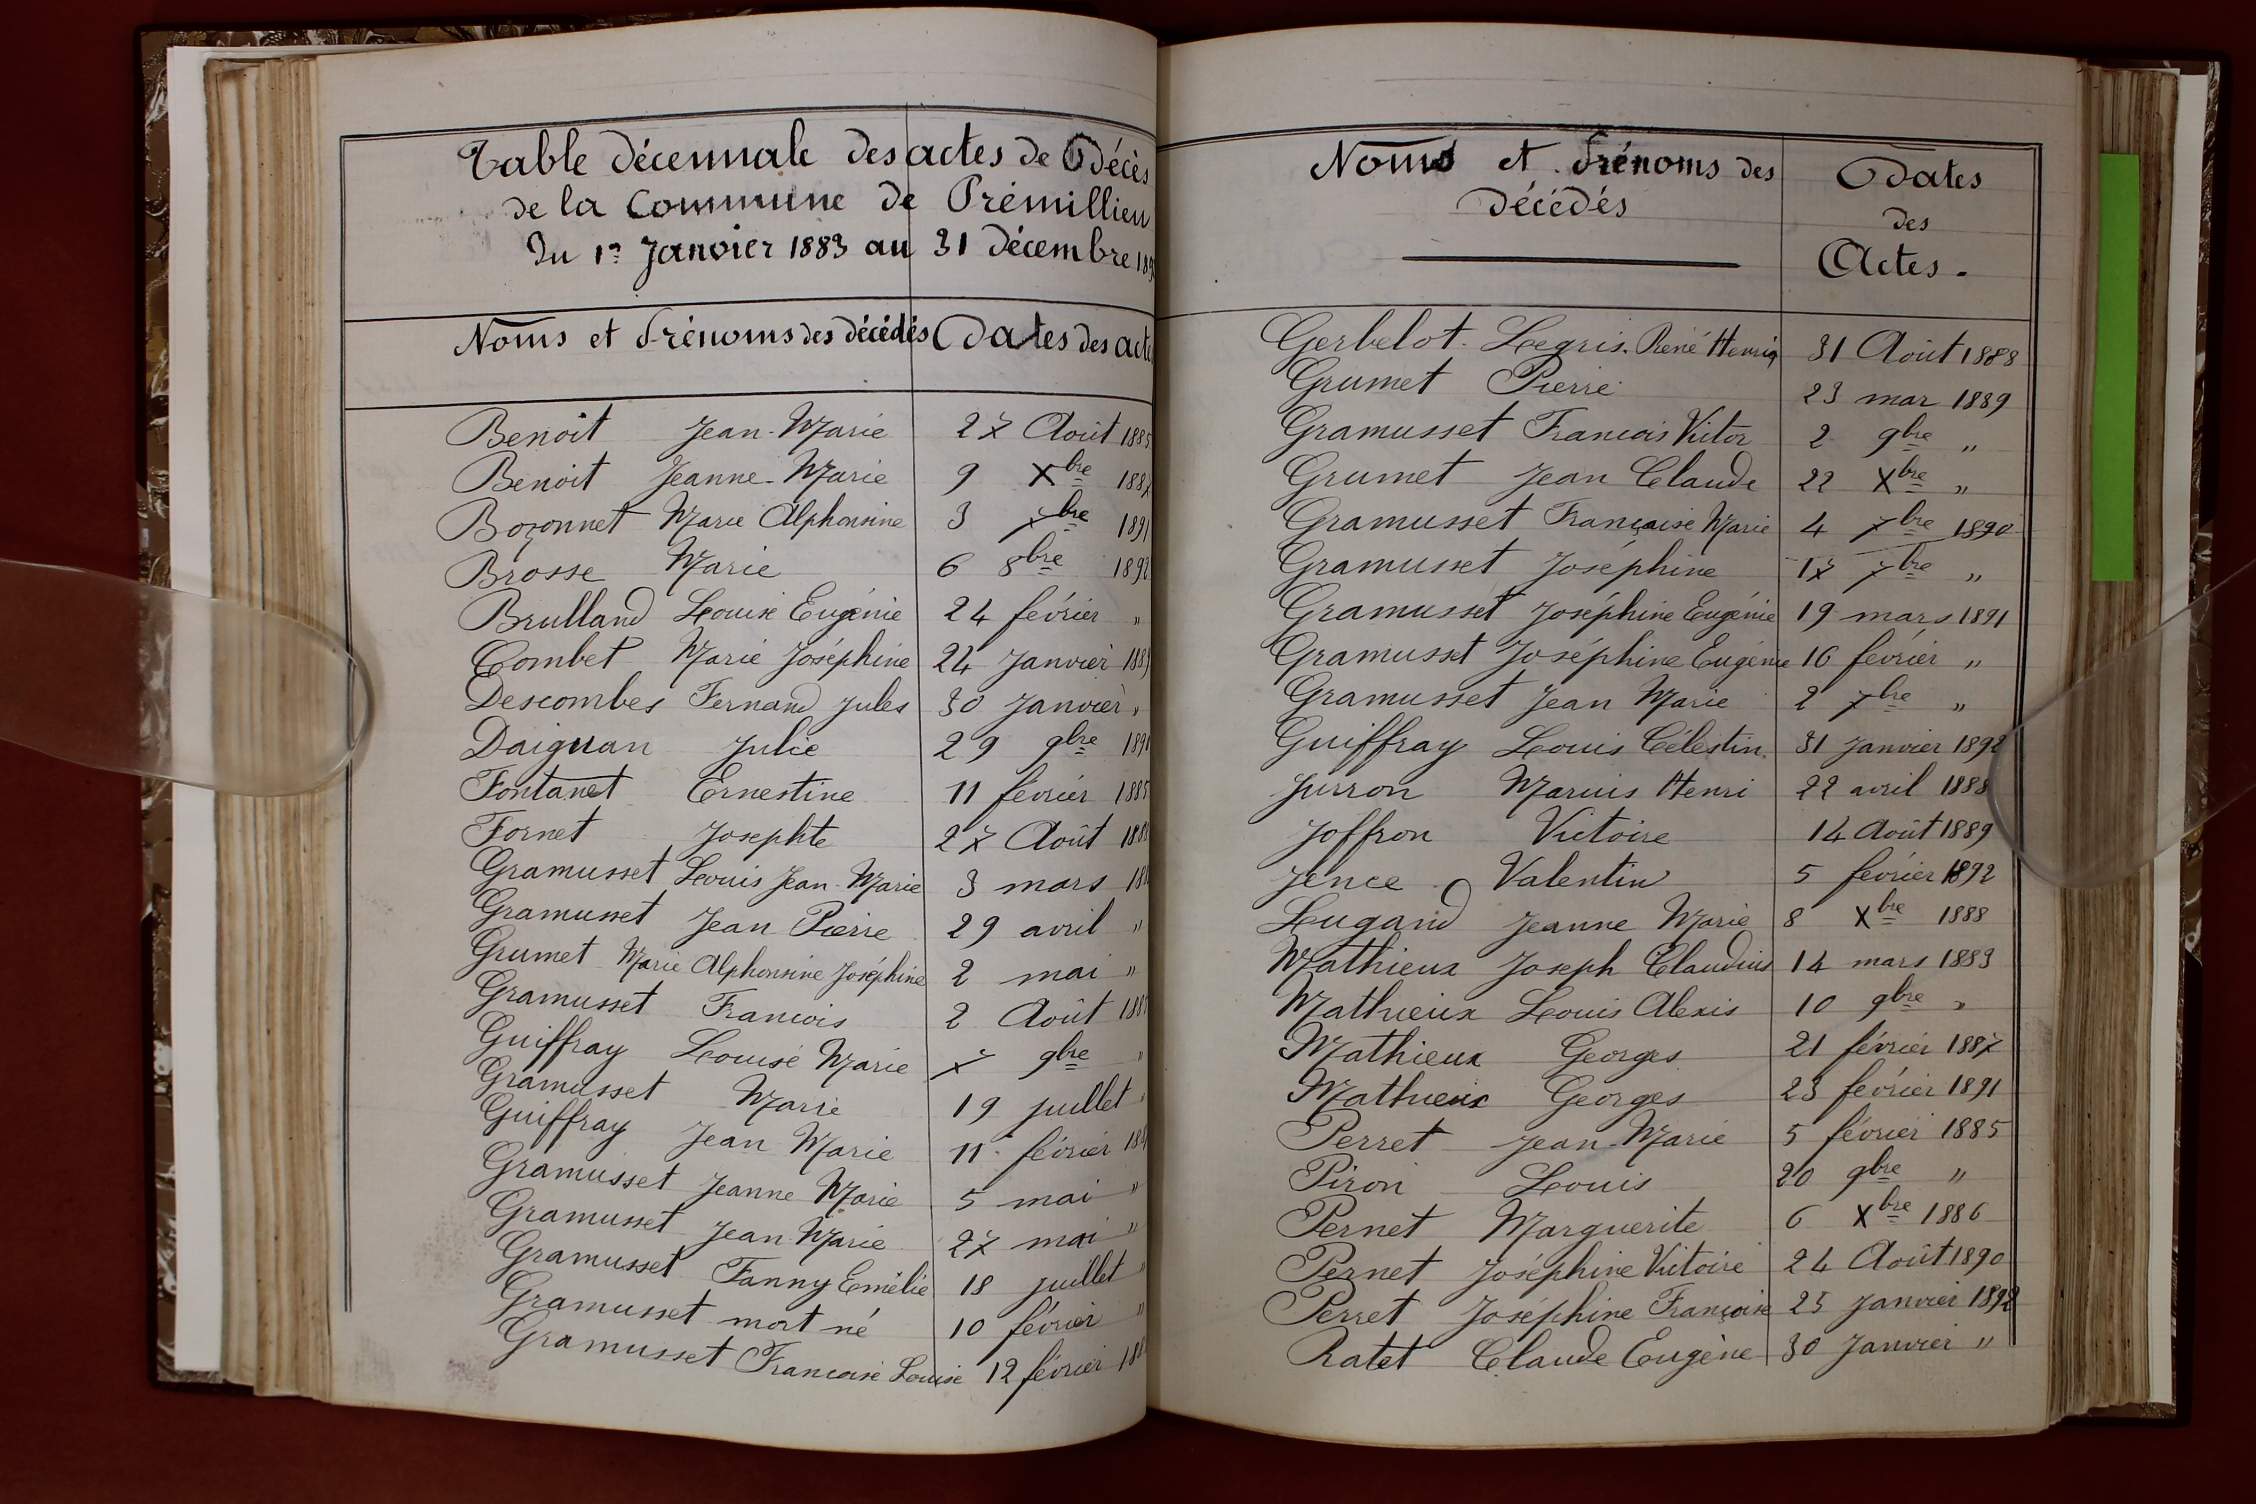 Table décennale des actes de Décès
de la Commune de Prémillieu
Du 1er Janvier 1883 au 31 Décembre
Noms et Prénoms des décédés Dates des acte
Benoit Jean-Marie 27 Août 1885
Benoit Jeanne-Marie 9 Xbre 1887
Bozonnet Marie Alphonsine 3 7bre 1891
Brosse Marie 6 8bre 1892
Brulland Louise Eugénie 24 février "
Combet Marie Joséphine 24 Janvier
Descombes Fernand Jules 30 Janvier "
Daignan Julie 29 9bre 1891
Fontanet Ernestine 11 février 1885
Fornet Josephte 27 Août
Gramusset Louis Jean-Marie 3 mars
Gramusset Jean Pierre 29 avril "
Grumet Marie Alphonsine Joséphine 2 mai "
Gramusset Francois 2 Août
Guiffray Louise Marie 7 9bre "
Gramusset Marie 19 juillet "
Guiffray Jean Marie 11 février
Gramusset Jeanne Marie 5 mai "
Gramusset Jean-Marie 27 mai "
Gramusset Fanny Emélie 18 juillet "
Gramusset mort né 10 février "
Gramusset Francoise Louise 12 février
Noms et Prénoms des Dates
Décédés des
Actes.
Gerbelot-Legris René Henri 31 Août 1888
Grumet Pierre 23 mar 1889
Gramusset Francois Victor 2 9bre "
Grumet Jean Claude 22 Xbre "
Gramusset Françoise Marie 4 7bre 1890
Gramusset Joséphine 17 7bre "
Gramusset Joséphine Eugénie 19 mars 1891
Gramusset Joséphine Eugénie 16 février "
Gramusset Jean Marie 2 7bre "
Guiffray Louis Célestin 31 Janvier 1892
Jurron Marius Henri 22 avril 1888
Joffron Victoire 14 Août 1889
Jence Valentin 5 février 1892
Lugand Jeanne Marie 8 Xbre 1888
Mathieux Joseph Claudius 14 mars 1883
Mathieux Louis Alexis 10 9bre "
Mathieux Georges 21 février 1887
Mathieux Georges 23 février 1891
Perret Jean-Marie 5 février 1885
Piron Louis 20 9bre "
Pernet Marguerite 6 Xbre 1886
Pernet Joséphine Victoire 24 Août 1890
Perret Joséphine Françoise 25 Janvier 1892
Ratet Claude Eugène 30 Janvier "